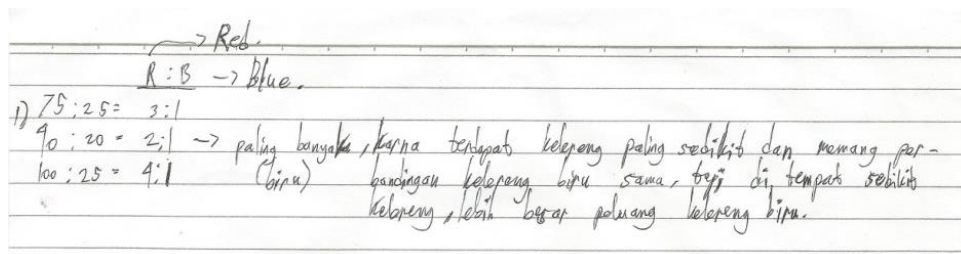 → Red.
R : B → Blue.
1) 75 : 25 = 3 : 1
40 : 20 = 2 : 1 → paling banyak, karna terdapat kelereng paling sedikit dan memang per-
100 : 25 = 4 : 1 (biru) bandingan kelereng biru sama, tepi di tempat sedikit
kelereng, lebih besar peluang kelereng biru.